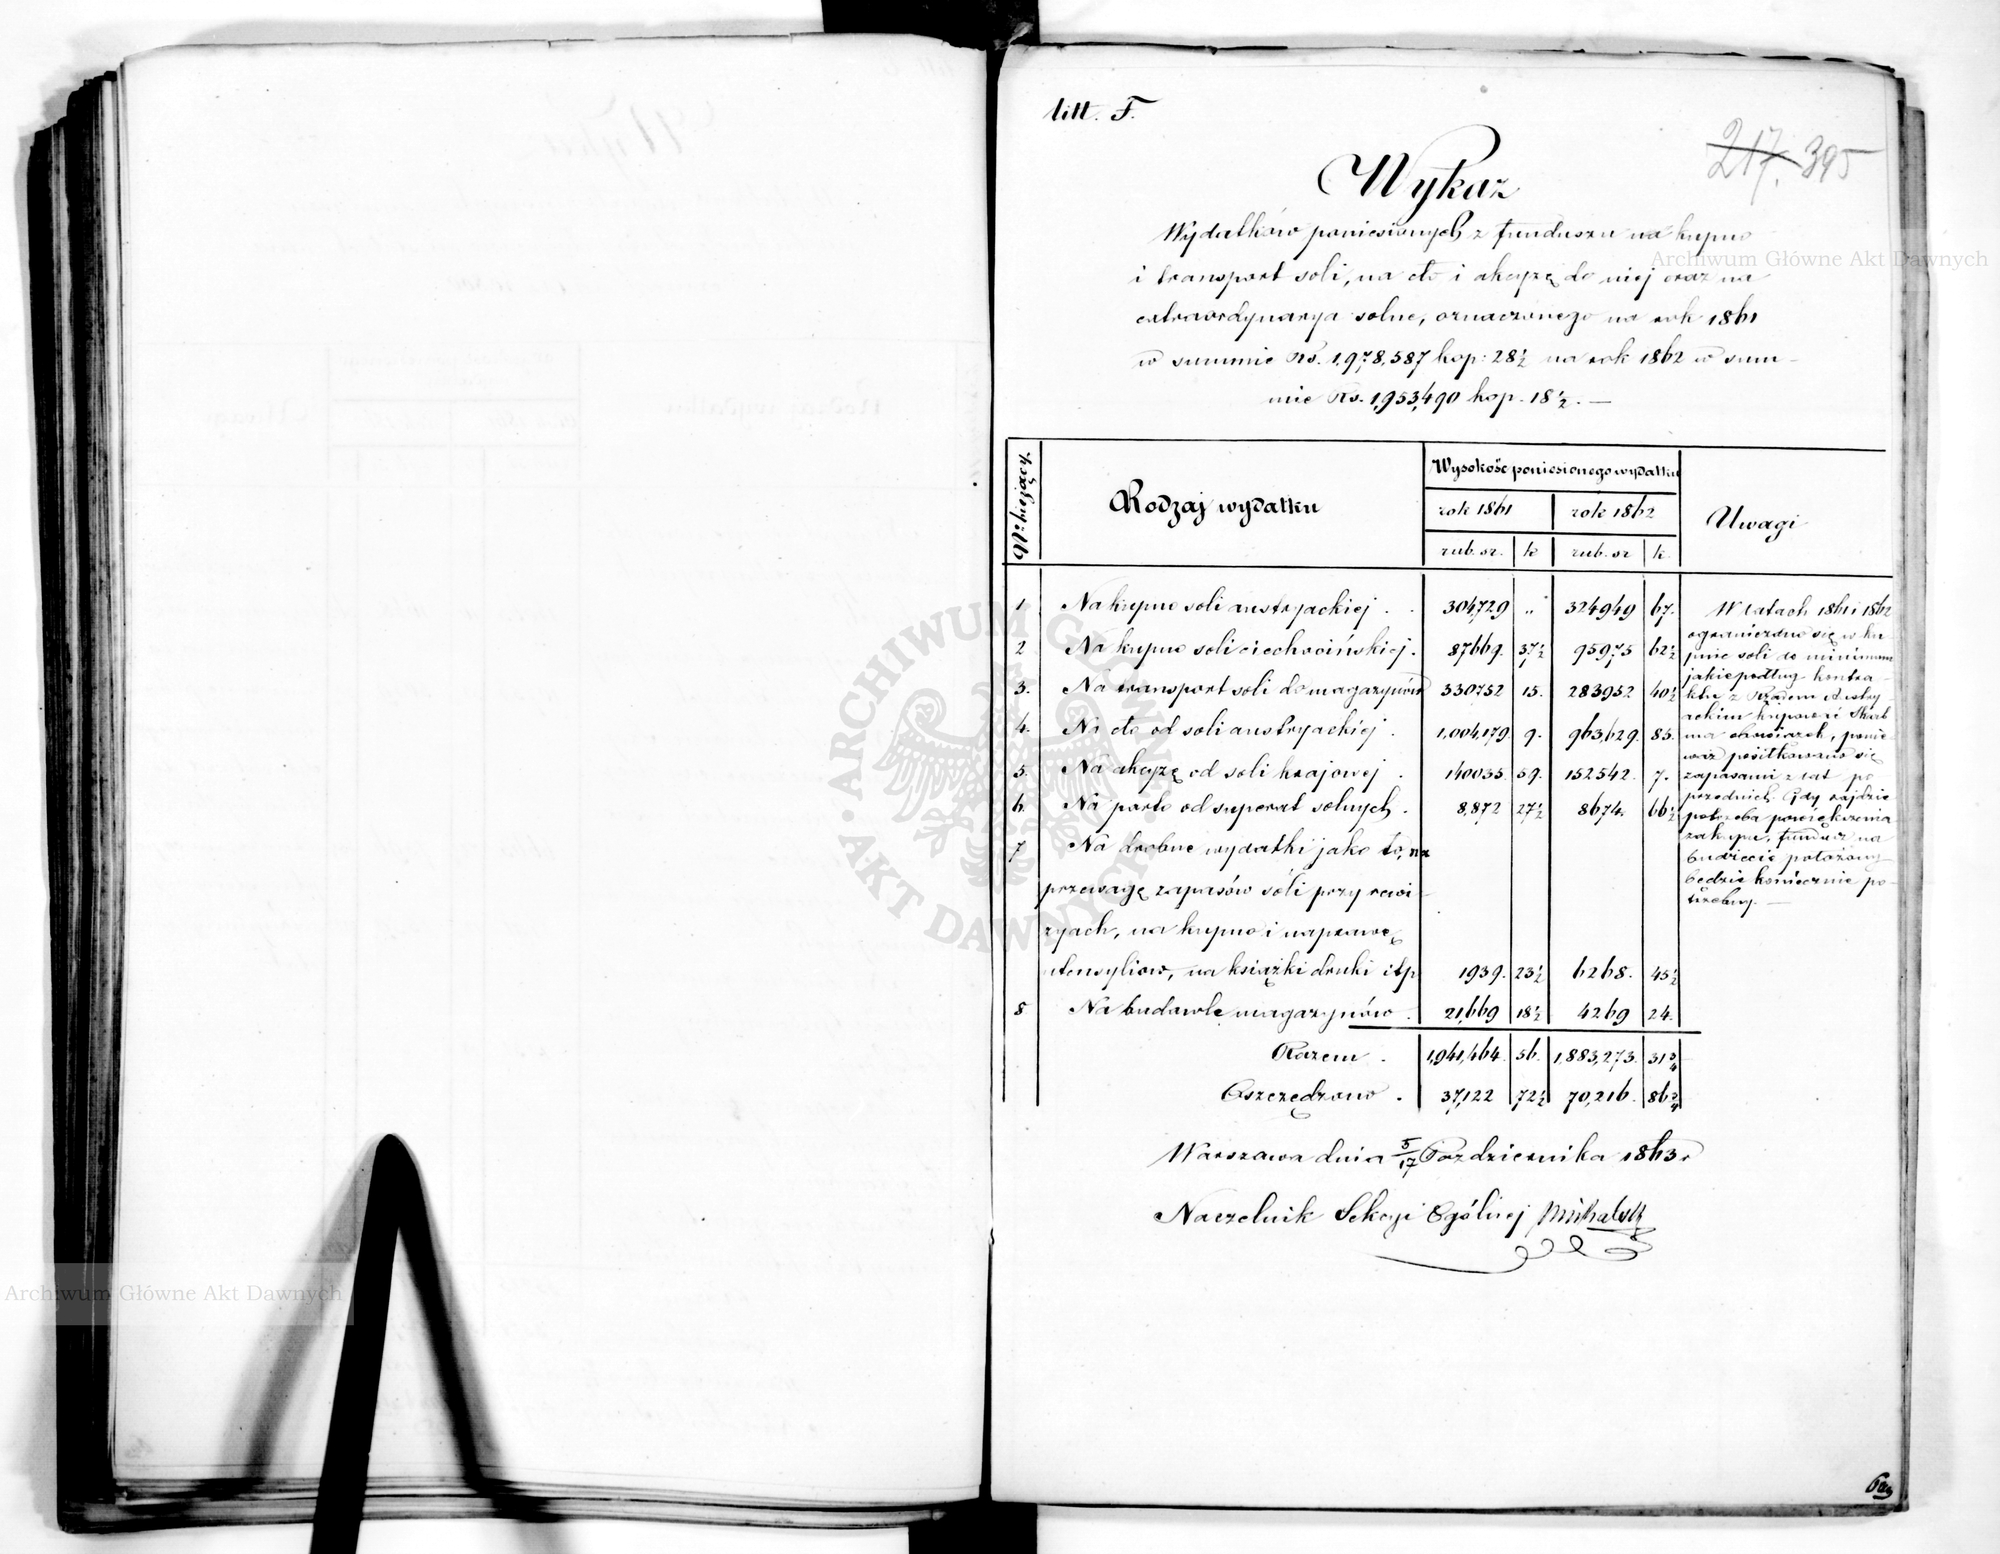 litt. F.
217. 395
Wykaz
Wydatków poniesionych z funduszu na kupno
i transport soli, na cło i akcyzę do niej oraz na
extraordynarya solne, oznaczonego na rok 1861
w summie Rs. 1,978,587 kop: 28½ na rok 1862 w sum-
mie Rs. 1,953,490 kop. 18½. —
Nr bieżący. Rodzaj wydatku Wysokość poniesionego wydatku Uwagi
rok 1861 rok 1862
rub. sr. k rub. sr k.
1. Na kupno soli austryackiej . . 304,729 „ 324949 67.
2 Na kupno soli ciechocińskiej . 87669. 37½ 95975 62½
3. Na transport soli do magazynów 330752 15. 283952 40½
4. Na cło od soli austryackiej . 1,004,179 9. 963,629. 85.
5. Na akcyzę od soli krajowej . 140035. 59. 152542. 7.
6. Na porto od superat solnych . 8,872 27½ 8674. 66½
7 Na drobne wydatki jako to, na
przewagę zapasów soli przy rewi-
zyach, na kupno i naprawę
utensyliow, na książki druki itp 1939. 23½ 6268. 45½
8 Na budowle magazynów . 21,669 18½ 4269 24.
Razem . 1,941,464. 56. 1,883,273. 31¾
Oszczędzono . 37,122 72½ 70,216. 86¾
W latach 1861 i 1862
ograniczono się w ku-
pnie soli do minimum
jakie podług kontra-
ktu z Rządem Austry-
ackim kupować Skarb
ma obowiązek, ponie-
waż posiłkowano się
zapasami z lat po-
przednich. Gdy zajdzie
potrzeba powiększenia
zakupu, fundusz na
budżecie położony
będzie koniecznie po-
trzebny. —
Warszawa dnia 5/17 Października 1863 r
Naczelnik Sekcyi Ogólnej Michalski
Archiwum Główne Akt Dawnych
Archiwum Główne Akt Dawnych
ARCHIWUM GŁÓWNE · AKT DAWNYCH ·